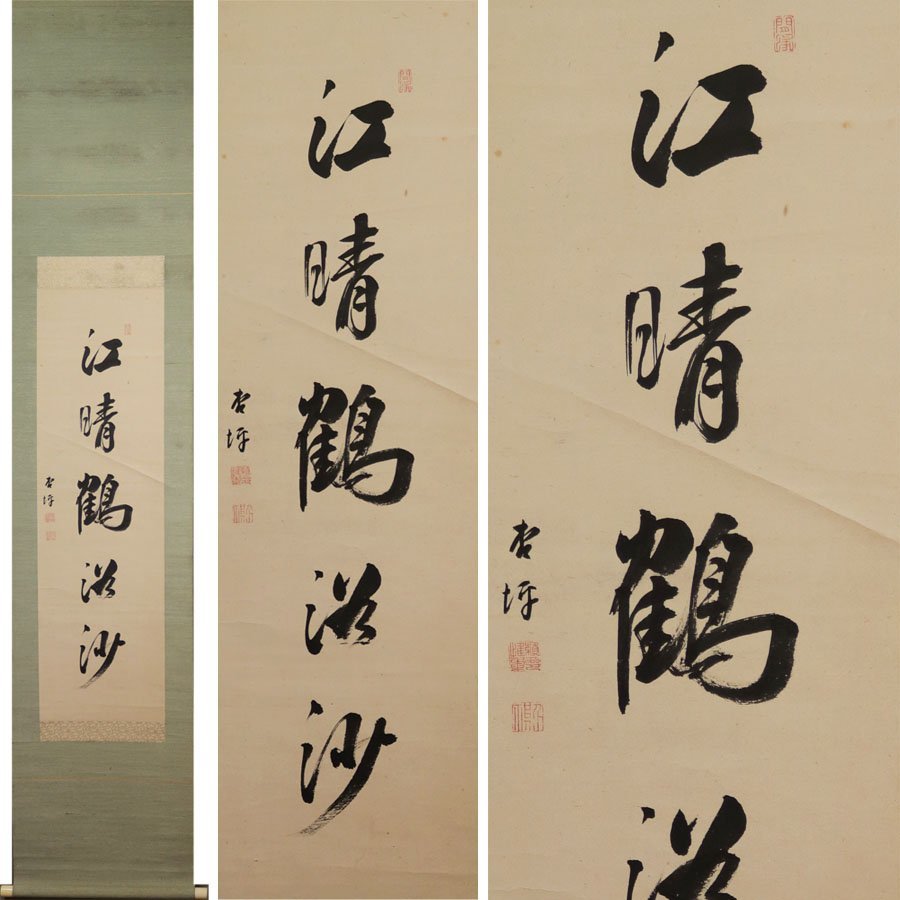 江晴鶴浴沙
杏坪
江晴鶴浴沙
杏坪
江晴鶴浴
杏坪